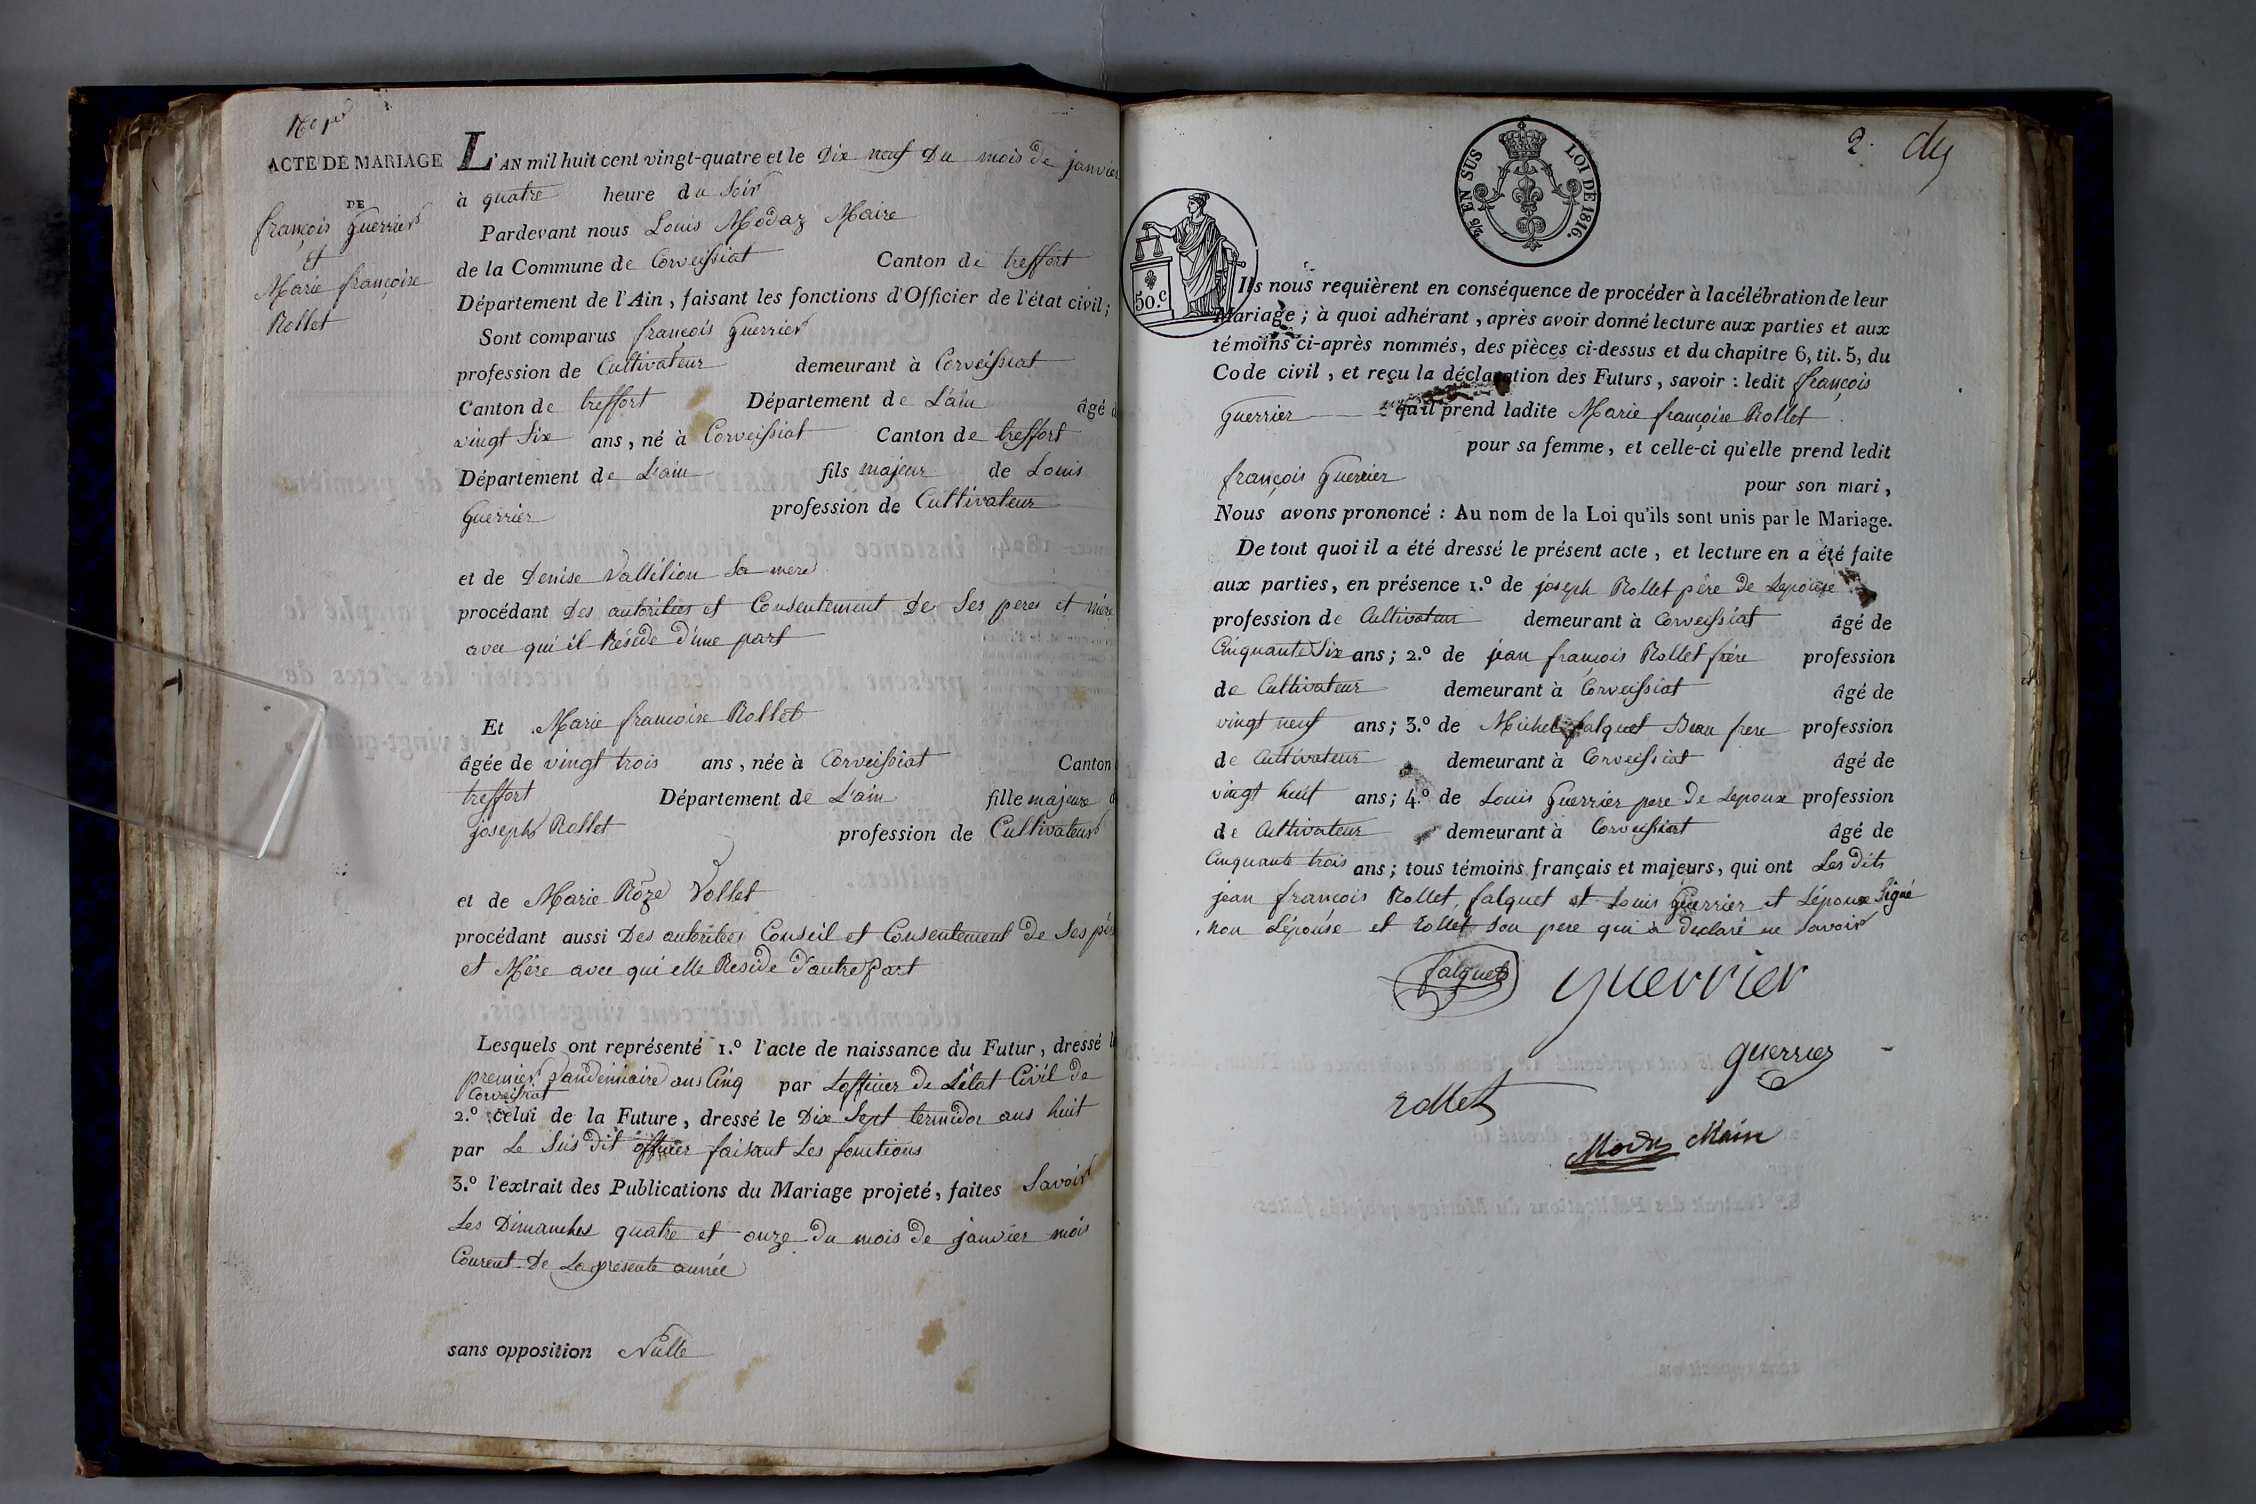 No 1er
ACTE DE MARIAGE
DE
françois Guerrier
Et
Marie françoise
Rollet
L'AN mil huit cent vingt-quatre et le Dix neuf Du mois de janvier
à quatre heure du Soir
Pardevant nous Louis Modaz Maire
de la Commune de Corveissiat Canton de treffort
Département de l'Ain, faisant les fonctions d'Officier de l'état civil;
Sont comparus françois Guerrier
profession de Cultivateur demeurant à Corveissiat
Canton de treffort Département de L'ain âgé
vingt Six ans, né à Corveissiat Canton de treffort
Département de L'ain fils majeur de Louis
Guerrier profession de Cultivateur
et de Denise Vallélion Sa mere
procédant Des autoritées et Consentement De Ses peres et mère
avec qui il Réside d'une part
Et Marie francoise Rollet
âgée de vingt trois ans, née à Corveissiat Canton
treffort Département de L'ain fille majeure
joseph Rollet profession de Cultivateur
et de Marie Rôze Vollet
procédant aussi Des autoritées Conseil et Consentement de Ses pér
et Mère avec qui elle Reside d'autre Part
Lesquels ont représenté 1.º l'acte de naissance du Futur, dressé le
premier Vandemiaire ans Cinq par Lofficier de L'état Civil de
Corveissiat
2.º celui de la Future, dressé le Dix Sept termidor ans huit
par Le Sus dit officier faisant Les fonctions
3.º l'extrait des Publications du Mariage projeté, faites Savoir
Les Dimanches quatre et onze Du mois De janvier mois
Courent De La presente année
sans opposition Nulle
2.
2/5 EN SUS LOI DE 1816.
50.c
Ils nous requièrent en conséquence de procéder à la célébration de leur
Mariage; à quoi adhérant, après avoir donné lecture aux parties et aux
témoins ci-après nommés, des pièces ci-dessus et du chapitre 6, tit. 5, du
Code civil, et reçu la déclaration des Futurs, savoir: ledit françois
Guerrier qu'il prend ladite Marie françoise Rollet
pour sa femme, et celle-ci qu'elle prend ledit
françois Guerrier pour son mari,
Nous avons prononcé: Au nom de la Loi qu'ils sont unis par le Mariage.
De tout quoi il a été dressé le présent acte, et lecture en a été faite
aux parties, en présence 1.º de joseph Rollet père de Lepouse
profession de Cultivateur demeurant à Corveissiat âgé de
Cinquante Six ans; 2.º de jean françois Rollet frère profession
de Cultivateur demeurant à Corveissiat âgé de
vingt neuf ans; 3.º de Michel falquet Beau frere profession
de Cultivateur demeurant à Corveissiat âgé de
vingt huit ans; 4.º de Louis Guerrier pere De Lepoux profession
de Cultivateur demeurant à Corveissiat âgé de
Cinquante trois ans; tous témoins français et majeurs, qui ont Les dits
jean françois Rollet, falquet et Louis Guerrier et Lépoux Signé
non Lépouse et Rollet Son pere qui à declaré ne Savoir
falquet
guerrier
guerrier
Rollet
Modaz Maire